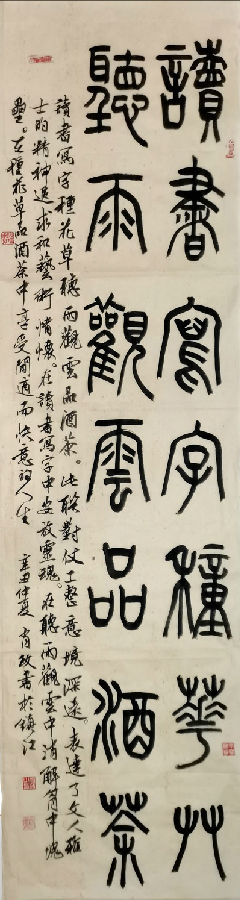 讀書寫字種華艸
聽雨觀雲品酒茶
讀書寫字種花草聽雨觀雲品酒茶。此聯對仗工整意境深遠。表達了文人雅
士的精神追求和藝術情懷。在讀書寫字中安放靈魂。在聽雨觀雲中消解胸中塊
壘。在種花草品酒茶中享受閒適而快意的人生 辛丑仲夏 肖政書於鎮江